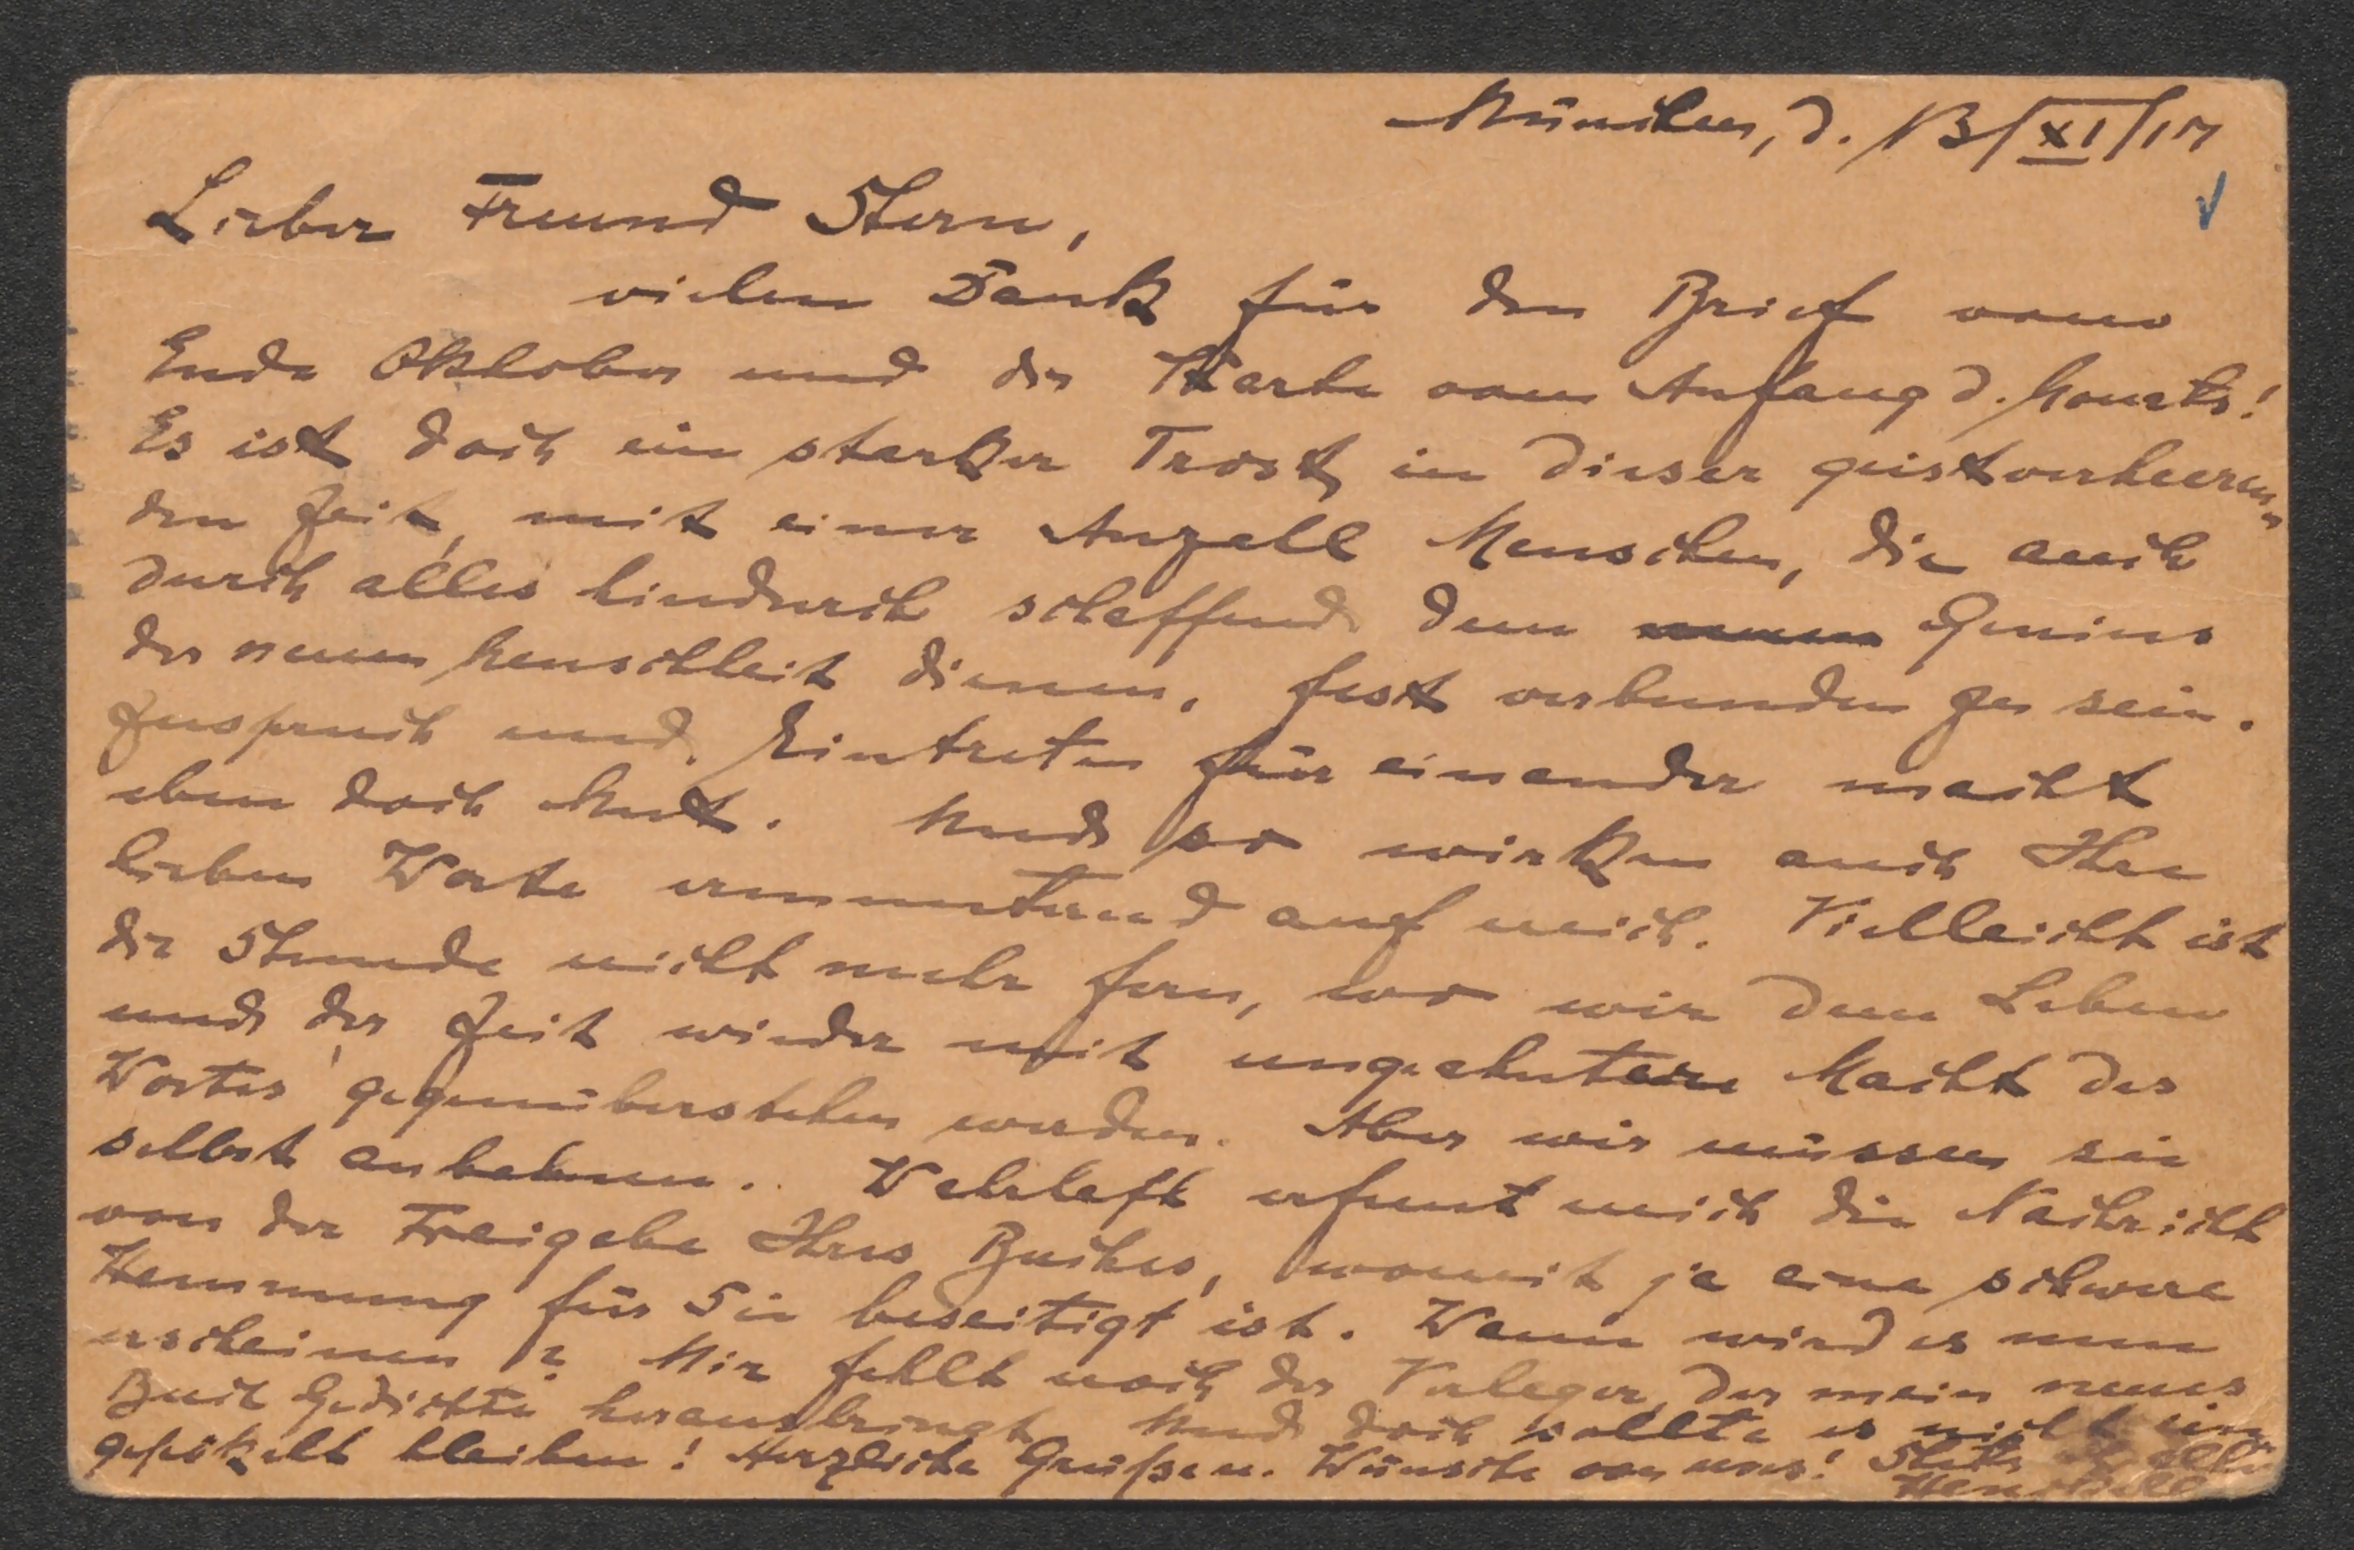 München, d. 13/XI/17
Lieber Freund Stern,
vielen Dank für den Brief vom
Ende Oktober und die Karte vom Anfang d. Monats!
Es ist doch ein starker Trost, in dieser geistverheeren-
den Zeit, mit einer Anzahl Menschen, die auch
durch alles hindurch schaffend dem Genius
der neuen Menschheit dienen, fest verbunden zu sein.
Zuspruch und Eintreten für einander macht
eben doch Mut. Und so wirken auch Ihre
lieben Worte ermunternd auf mich. Vielleicht ist
die Stunde nicht mehr fern, wo wir dem Leben
und der Zeit wieder mit ungeahnter Macht des
Wortes gegenüberstehen werden. Aber wir müssen sie
selbst anbahnen. Wahrhaft erfreut mich die Nachricht
von der Freigabe Ihres Buches, womit ja eine schwere
Hemmung für Sie beseitigt ist. Wann wird es nun
erscheinen? Mir fehlt noch der Verleger, der mein neues
Buch Gedichte herausbringt. Und doch sollte es nicht ein-
gepökelt bleiben! Herzliche Grüße u. Wünsche von uns! Stets
Henckell